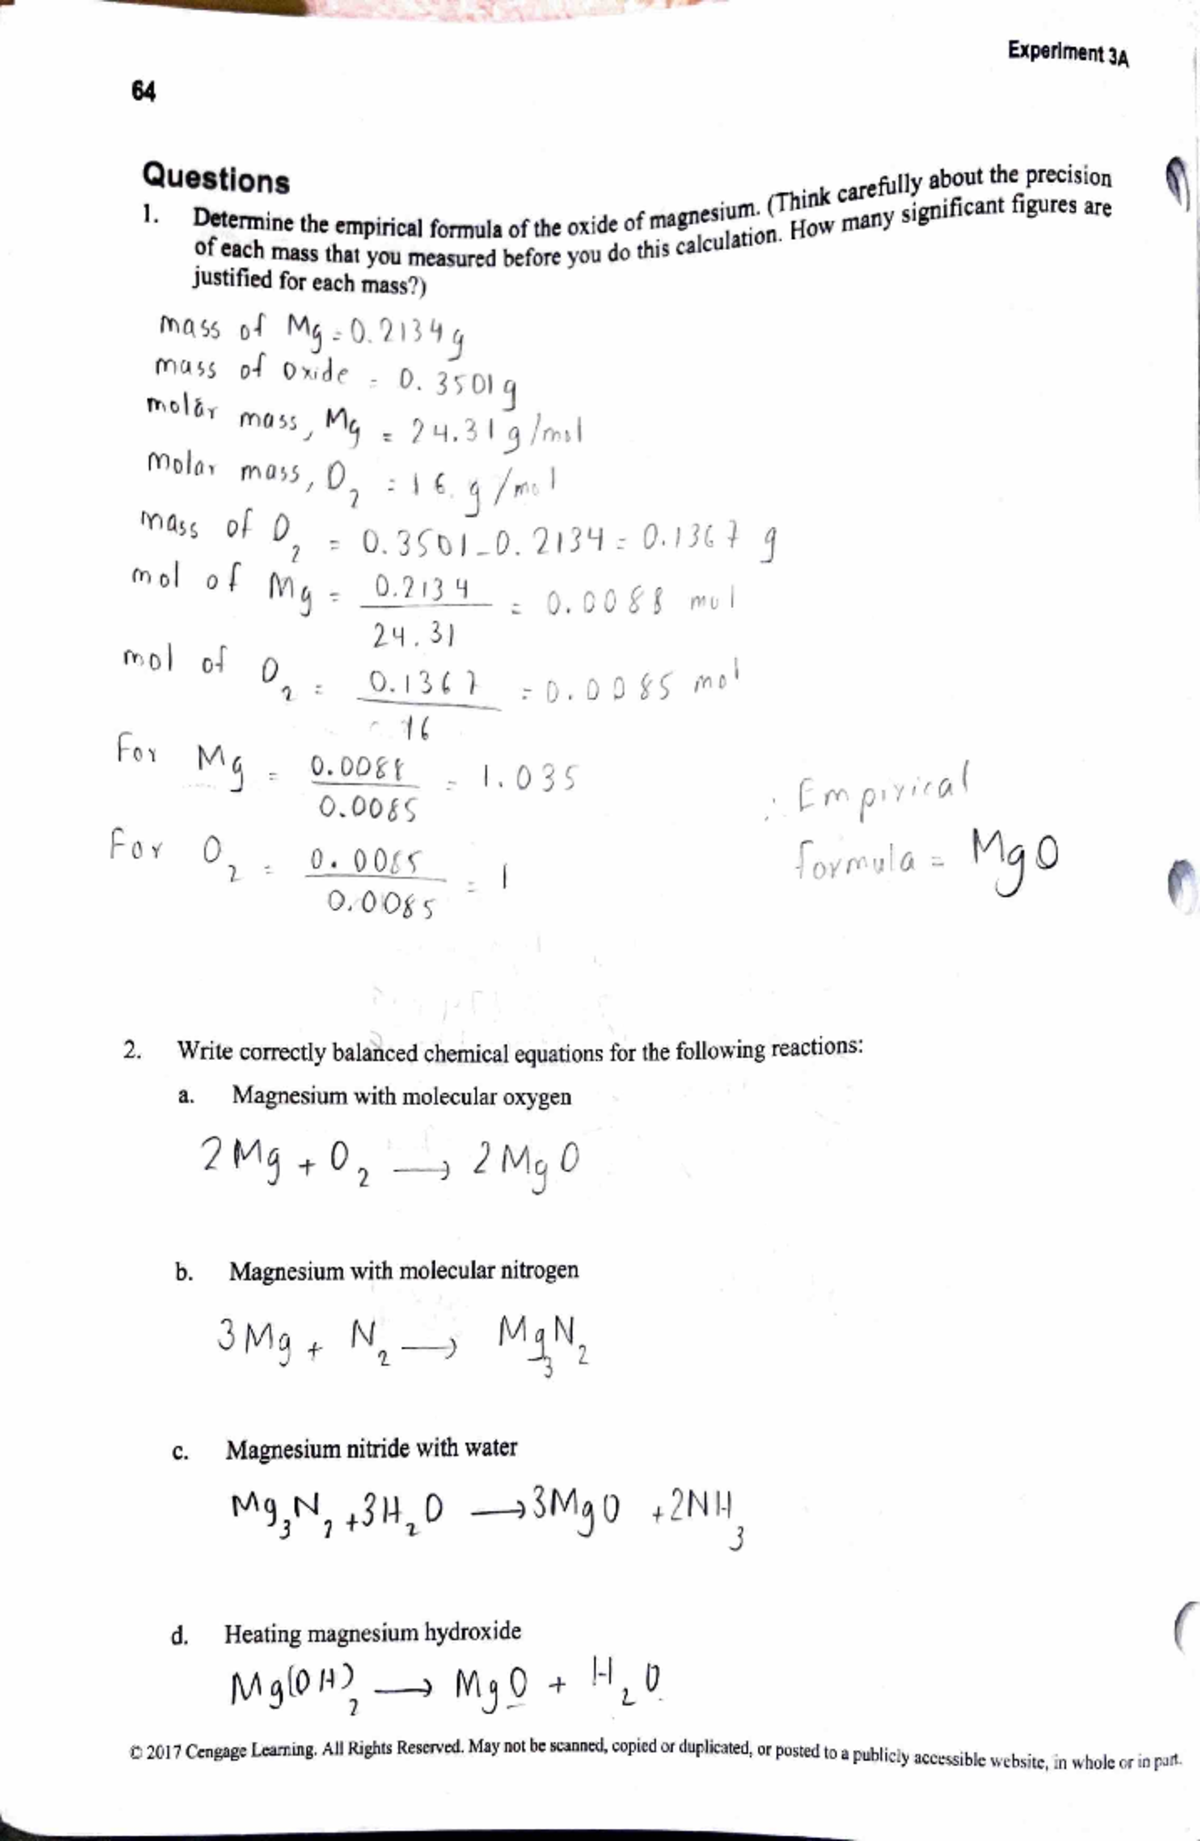 Experiment 3A
64
Questions
1. Determine the empirical formula of the oxide of magnesium. (Think carefully about the precision
of each mass that you measured before you do this calculation. How many significant figures are
justified for each mass?)
mass of Mg = 0.2134 g
mass of oxide = 0.3501 g
molar mass, Mg = 24.31 g/mol
molar mass, O₂ = 16. g/mol
mass of O₂ = 0.3501 - 0.2134 = 0.1367 g
mol of Mg = 0.2134 / 24.31 = 0.0088 mol
mol of O₂ = 0.1367 / 16 = 0.0085 mol
For Mg = 0.0088 / 0.0085 = 1.035
For O₂ = 0.0085 / 0.0085 = 1
∴ Empirical
formula = MgO
2. Write correctly balanced chemical equations for the following reactions:
a. Magnesium with molecular oxygen
2Mg + O₂ → 2MgO
b. Magnesium with molecular nitrogen
3Mg + N₂ → Mg₃N₂
c. Magnesium nitride with water
Mg₃N₂ + 3H₂O → 3MgO + 2NH₃
d. Heating magnesium hydroxide
Mg(OH)₂ → MgO + H₂O
© 2017 Cengage Learning. All Rights Reserved. May not be scanned, copied or duplicated, or posted to a publicly accessible website, in whole or in part.